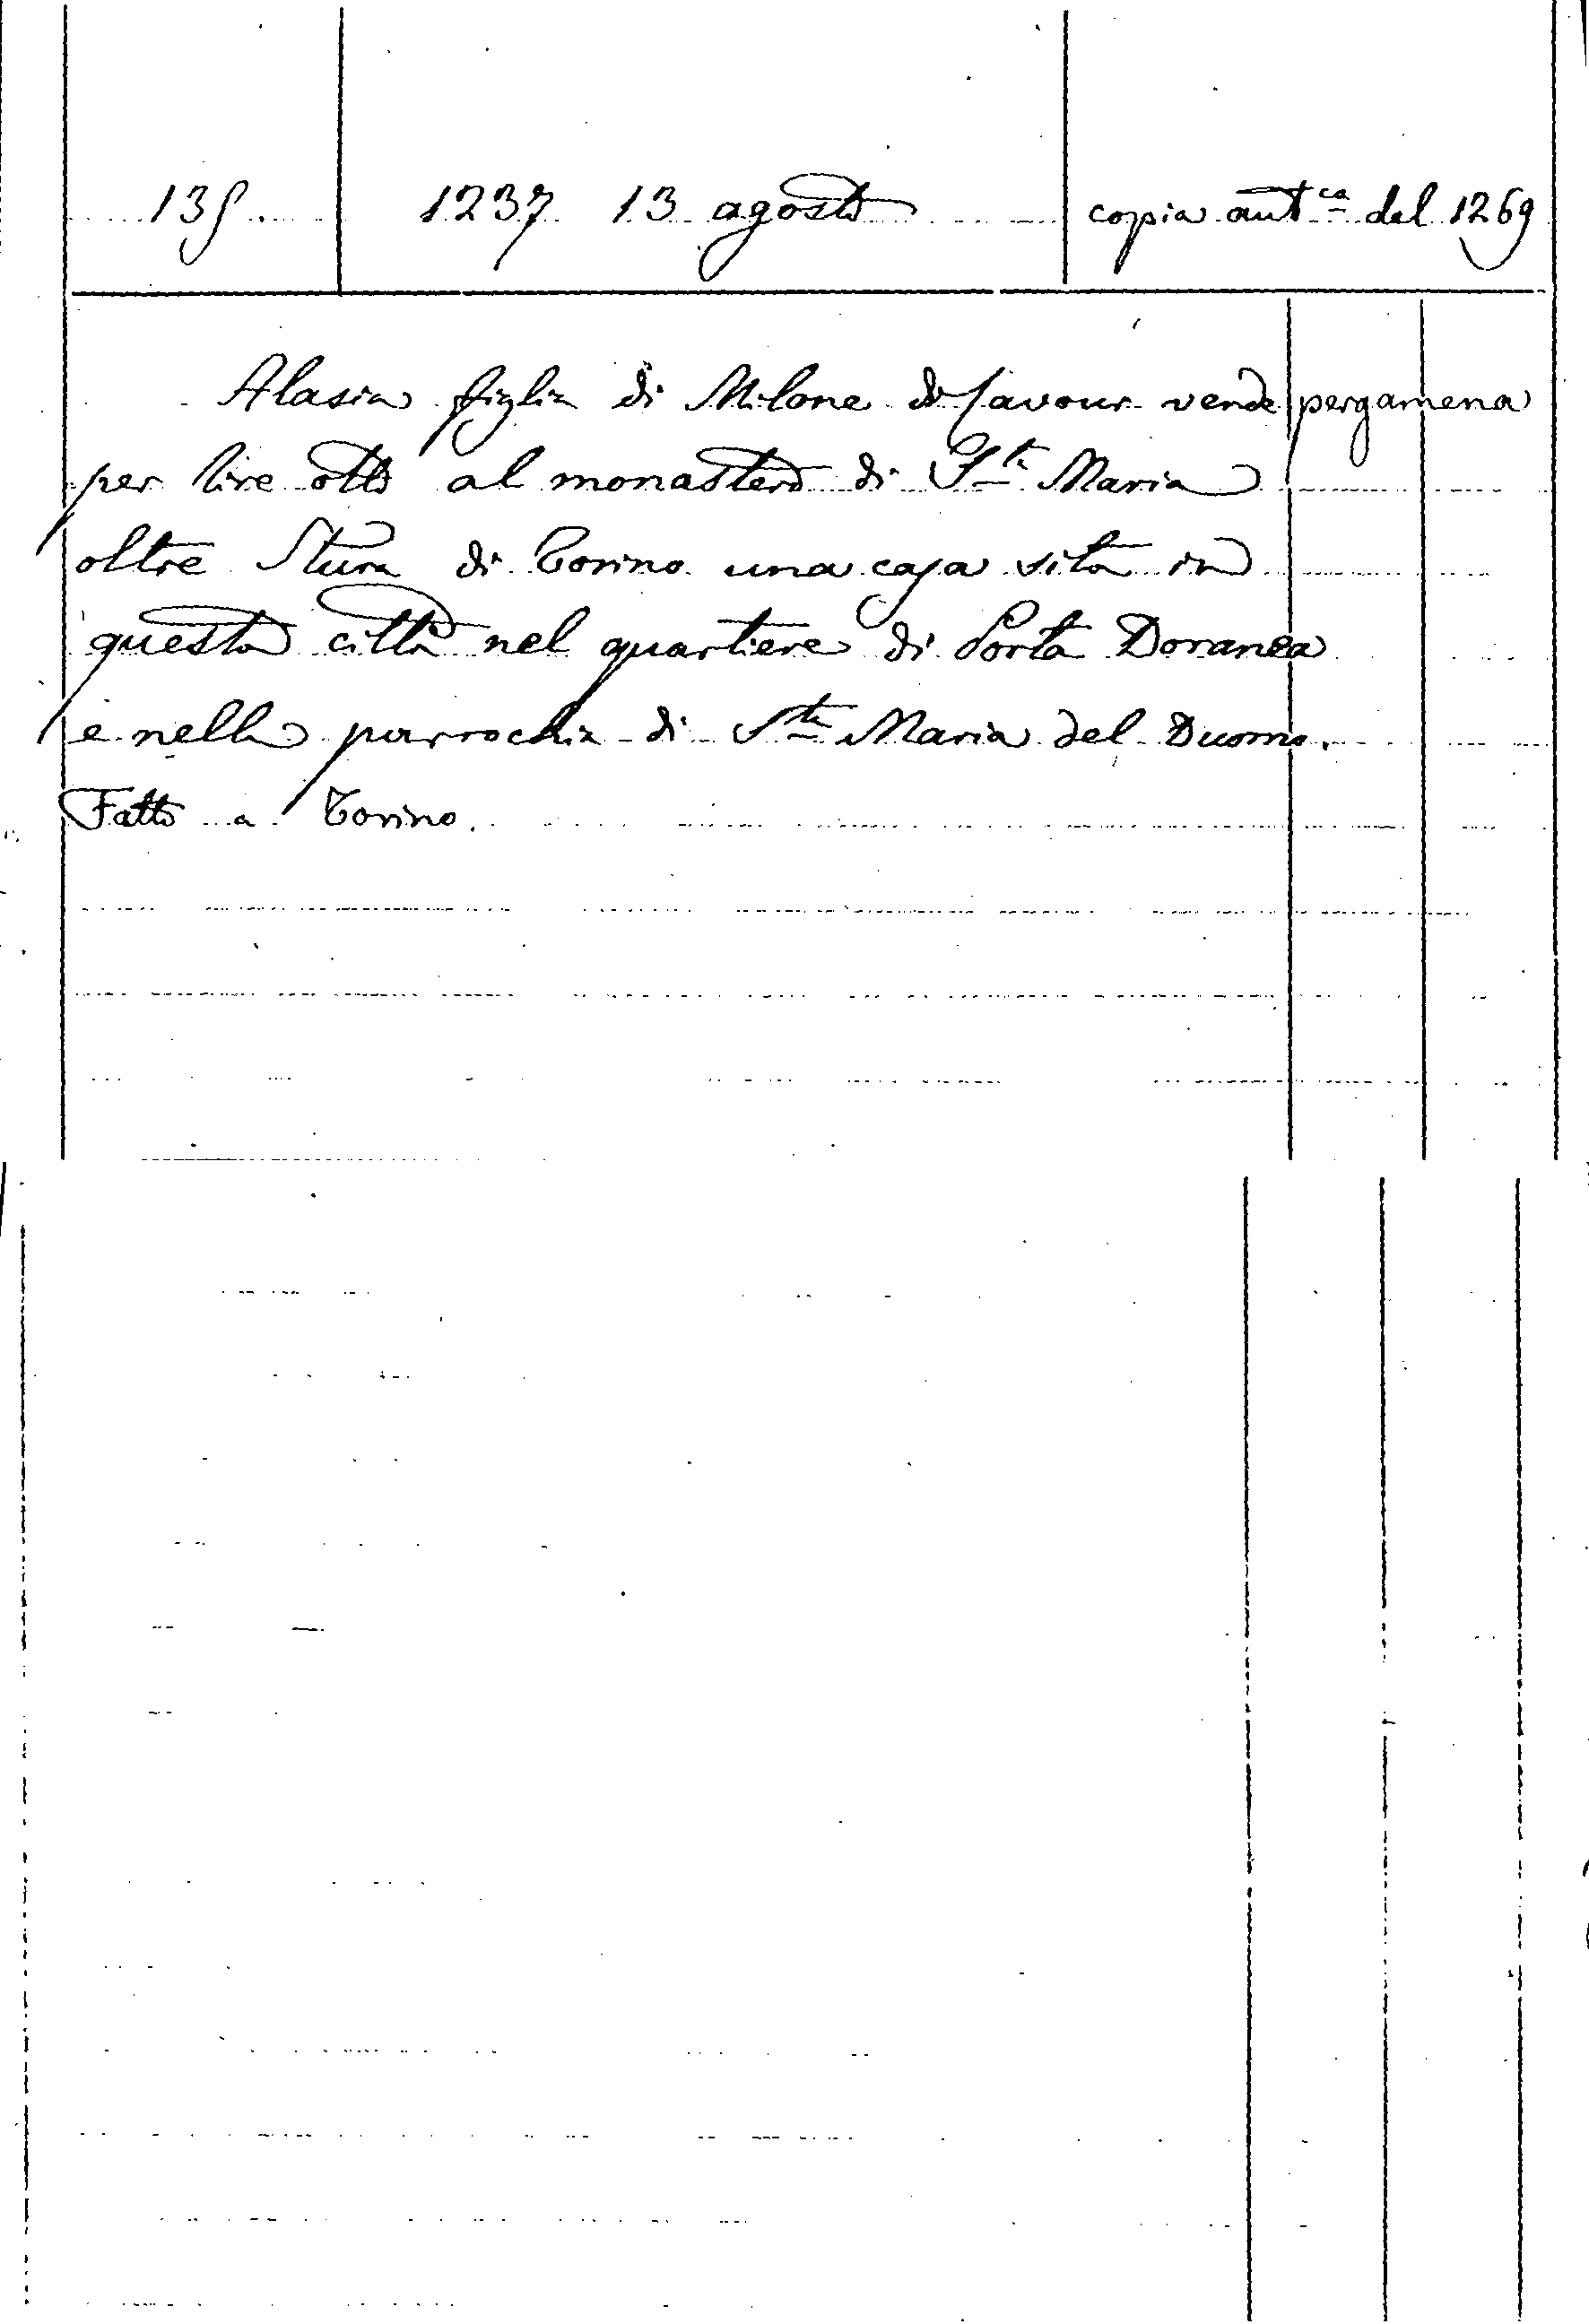 135. 1237 13 agosto copia autca del 1269
Alasia figlia di Milone di Cavour vende pergamena
per lire otto al monastero di Sta Maria
oltre Stura di Torino una casa sita in
questa città nel quartiere di Porta Doranea
e nella parrochia di Sta Maria del Duomo.
Fatto a Torino.